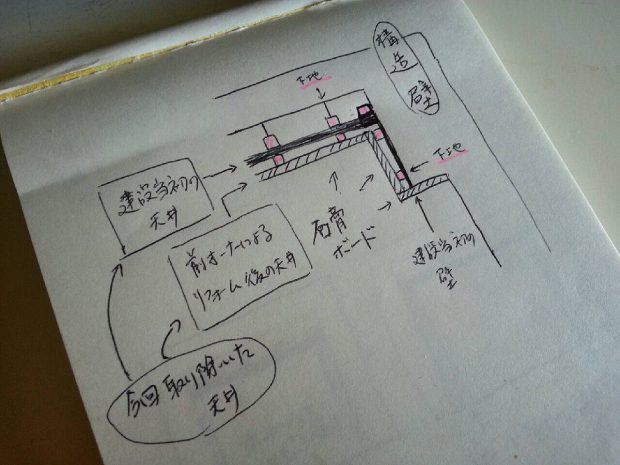 構造
壁
下地
下地
建設当初の
天井
前オーナーによる
リフォーム後の天井
石膏
ボード
建設当初の
壁
今回取り除いた
天井